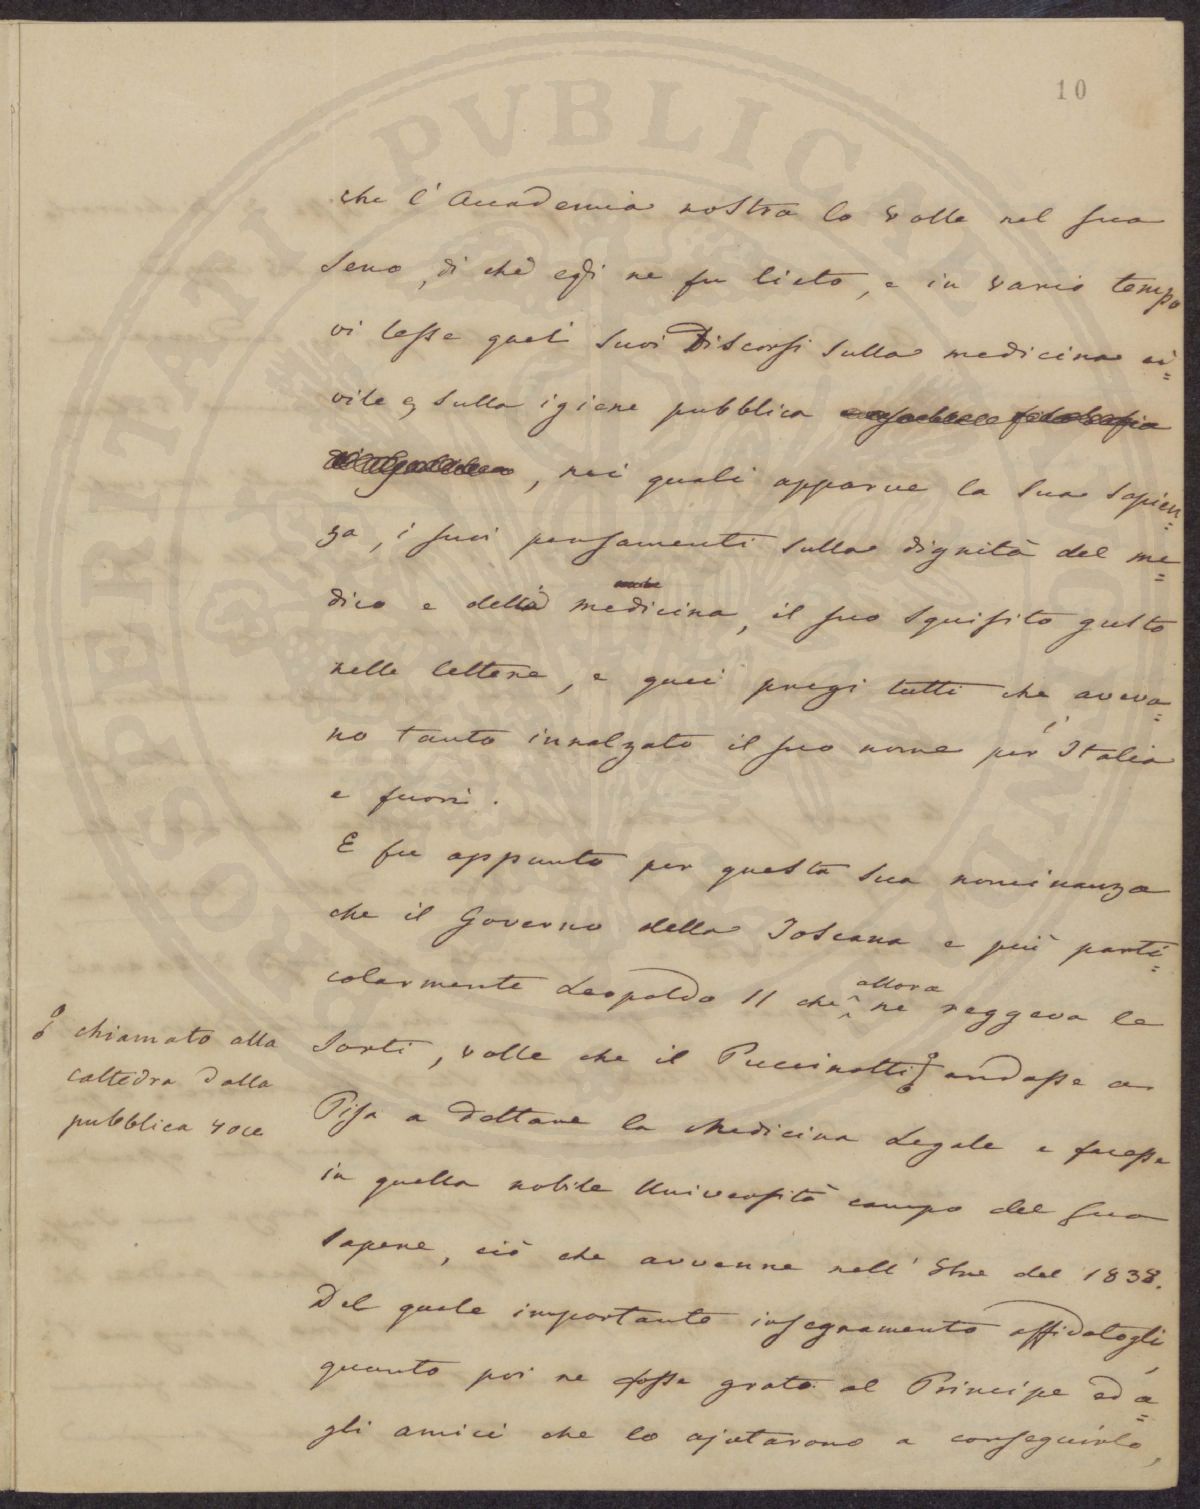 10
che l'Accademia nostra lo volle nel suo
seno, di che egli ne fu lieto, e in vario tempo
vi lesse quei suoi Discorsi sulla medicina ci=
vile e sulla igiene pubblica
, nei quali apparve la sua sapien=
za, i suoi pensamenti sulla dignità del me=
dico e della medicina, il suo squisito gusto
nelle lettere, e quei pregi tutti che aveva=
no tanto innalzato il suo nome per Italia
e fuori.
E fu appunto per questa sua nominanza
che il Governo della Toscana e più parti=
colarmente Leopoldo II che allora ne reggeva le
sorti, volle che il Puccinotti andasse a
chiamato alla
cattedra dalla
pubblica voce
Pisa a dettare la Medicina Legale e facesse
in quella nobile Università campo del suo
sapere, ciò che avvenne nell' del 1838.
Del quale importante insegnamento affidatogli,
quanto poi ne fosse grato al Principe ed a=
gli amici che lo ajutarono a conseguirlo,
PVBLICAE
PROSPERITATI